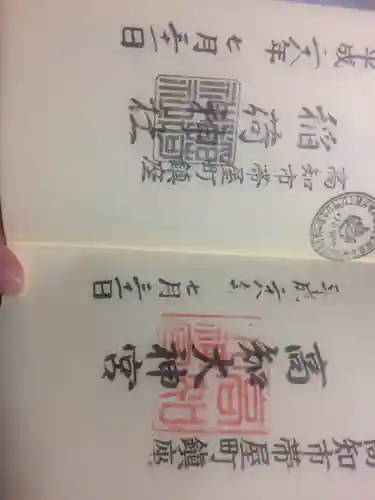 高知市帯屋町鎮座
高知大神宮
平成二十八年 七月三十一日
高知市帯屋町鎮座
稲荷神社
平成二十八年 七月三十一日